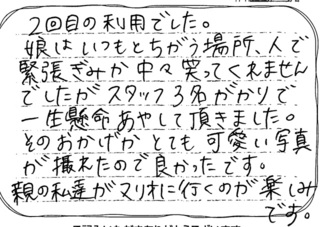 2回目の利用でした。
娘はいつもとちがう場所、人で
緊張ぎみか中々笑ってくれません
でしたがスタッフ3名がかりで
一生懸命あやして頂きました。
そのおかげかとても可愛い写真
が撮れたので良かったです。
親の私達がマリオに行くのが楽しみ
です。